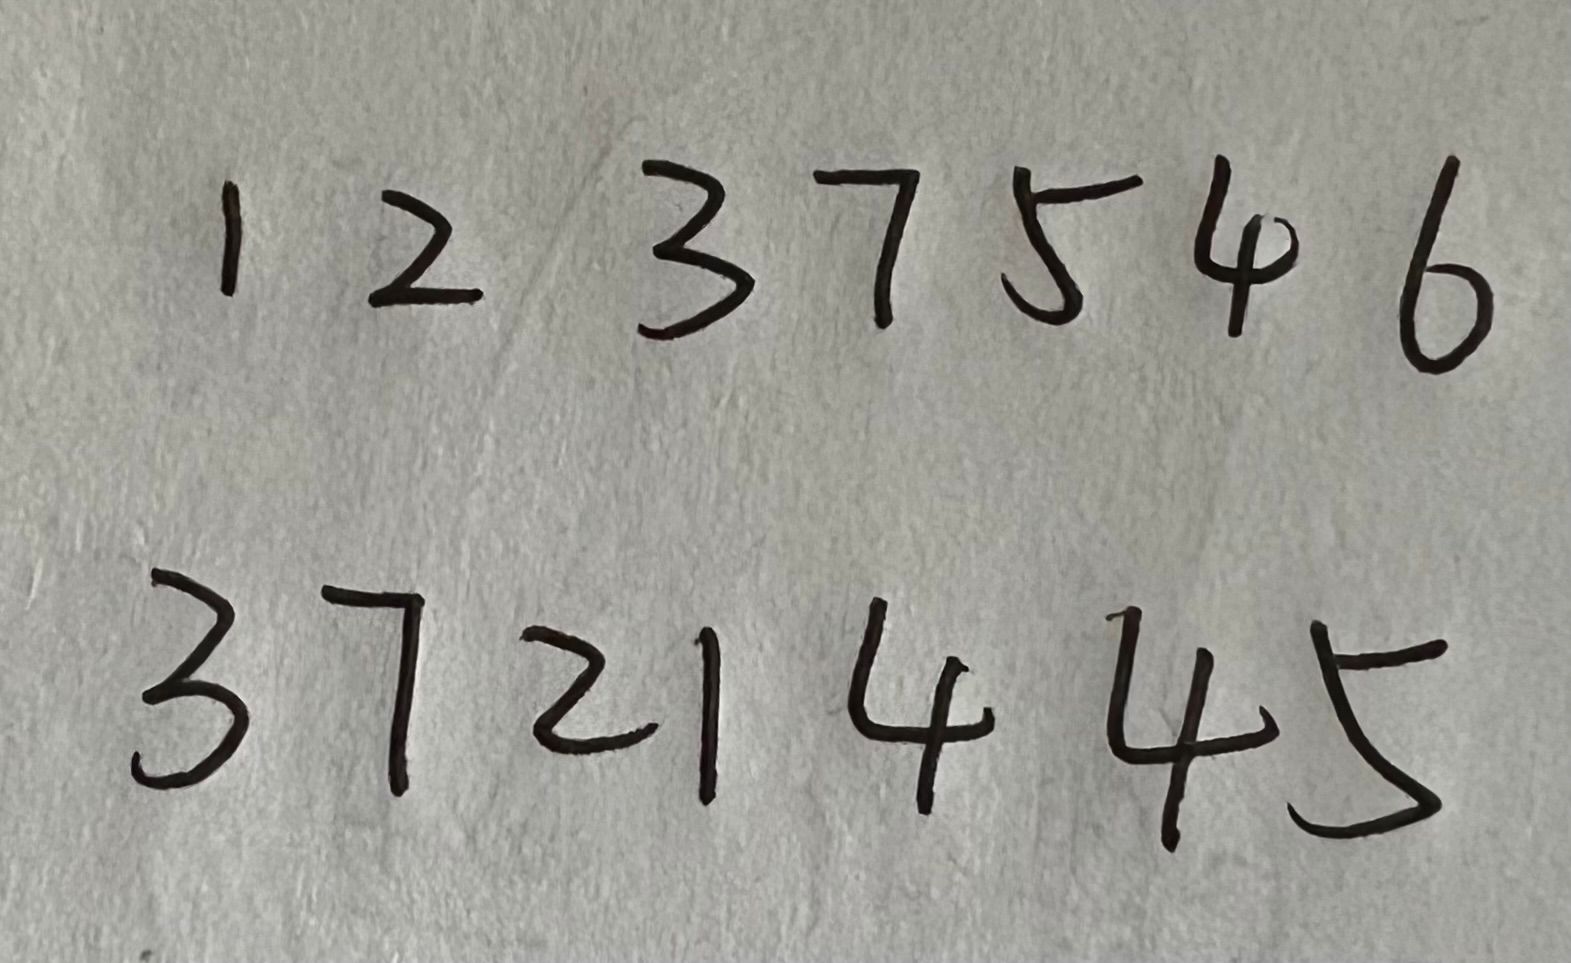 1 2 3 7 5 4 6
3 7 2 1 4 4 5